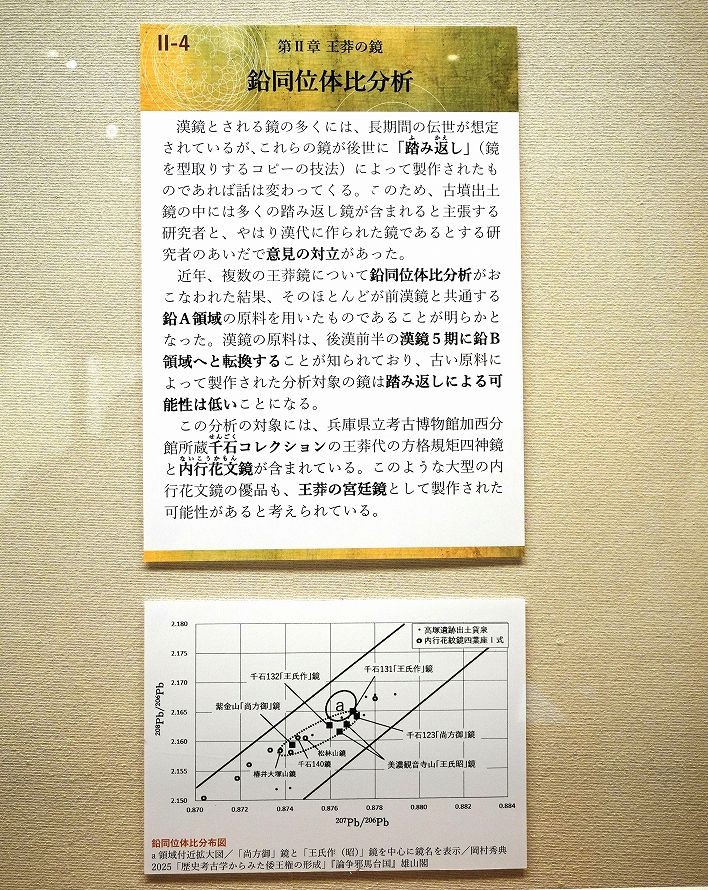 II-4
第Ⅱ章 王莽の鏡
鉛同位体比分析
漢鏡とされる鏡の多くには、長期間の伝世が想定
されているが、これらの鏡が後世に「踏み返し」（鏡
を型取りするコピーの技法）によって製作されたも
のであれば話は変わってくる。このため、古墳出土
鏡の中には多くの踏み返し鏡が含まれると主張する
研究者と、やはり漢代に作られた鏡であるとする研
究者のあいだで意見の対立があった。
近年、複数の王莽鏡について鉛同位体比分析がお
こなわれた結果、そのほとんどが前漢鏡と共通する
鉛Ａ領域の原料を用いたものであることが明らかと
なった。漢鏡の原料は、後漢前半の漢鏡５期に鉛Ｂ
領域へと転換することが知られており、古い原料に
よって製作された分析対象の鏡は踏み返しによる可
能性は低いことになる。
この分析の対象には、兵庫県立考古博物館加西分
館所蔵千石コレクションの王莽代の方格規矩四神鏡
と内行花文鏡が含まれている。このような大型の内
行花文鏡の優品も、王莽の宮廷鏡として製作された
可能性があると考えられている。
2.180
2.175
2.170
2.165
2.160
2.155
2.150
208Pb/206Pb
高塚遺跡出土貨泉
内行花紋鏡四葉座Ⅰ式
千石132「王氏作」鏡
千石131「王氏作」鏡
紫金山「尚方御」鏡
a
千石123「尚方御」鏡
松林山鏡
千石140鏡
美濃観音寺山「王氏昭」鏡
椿井大塚山鏡
0.870
0.872
0.874
0.876
0.878
0.880
0.882
0.884
207Pb/206Pb
鉛同位体比分布図
a 領域付近拡大図／「尚方御」鏡と「王氏作（昭）」鏡を中心に鏡名を表示／岡村秀典
2025「歴史考古学からみた倭王権の形成」『論争邪馬台国』雄山閣